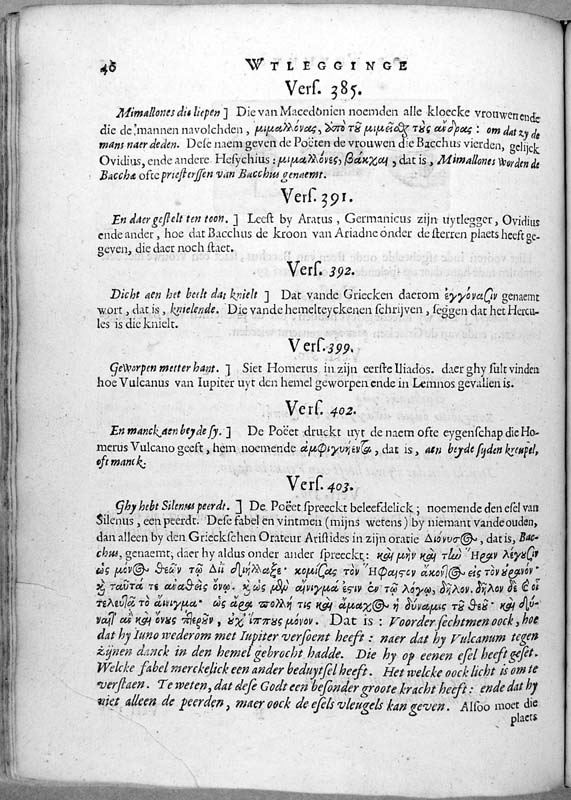 46 WTLEGGINGE
Vers. 385.
Mimallones die liepen ] Die van Macedonien noemden alle kloecke vrouwen ende
die de mannen navolchden, μιμαλλόνας, ὑπὸ τῦ μιμεῖσθ τȣς ἄνδρας: om dat zy de
mans naer deden. Dese naem geven de Poëten de vrouwen die Bacchus vierden, gelijck
Ovidius, ende andere Hesychius: μιμαλλόνες, βάκχαι, dat is, Mimallones worden de
Bacchæ ofte priesterssen van Bacchus genaemt.
Vers. 391.
En daer gestelt ten toon. ] Leest by Aratus, Germanicus zijn uytlegger, Ovidius
ende ander, hoe dat Bacchus de kroon van Ariadne onder de sterren plaets heeft ge-
geven, die daer noch staet.
Vers. 392.
Dicht aen het beelt dat knielt ] Dat vande Griecken daerom ἐγγόνασιν genaemt
wort, dat is, knielende. Die vande hemelteyckenen schrijven, seggen dat het Hercu-
les is die knielt.
Vers. 399.
Geworpen metter hant. ] Siet Homerus in zijn eerste Iliados. daer ghy sult vinden
hoe Vulcanus van Iupiter uyt den hemel geworpen ende in Lemnos gevallen is.
Vers. 402.
En manck aen beyde sy. ] De Poëet druckt uyt de naem ofte eygenschap die Ho-
merus Vulcano geeft, hem noemende ἀμφιγυήεντα, dat is, aen beyde syden kreupel,
oft manck.
Vers. 403.
Ghy hebt Silenus peerdt. ] De Poëet spreeckt beleefdelick; noemende den esel van
Silenus, een peerdt. Dese fabel en vintmen (mijns wetens) by niemant vande ouden,
dan alleen by den Grieckschen Orateur Aristides in zijn oratie Διόνυσος, dat is, Bac-
chus, genaemt, daer hy aldus onder ander spreeckt: καὶ μὴν καὶ τὴν Ἥραν λέγουσιν
ὡς μόνος θεῶν τῷ Διὶ συνήλλαξε· κομίσας τὸν Ἥφαιστον ἄκοντος εἰς τὸν οὐρανόν·
καὶ ταῦτά τε ἀναθεὶς ὄνῳ. καὶ ὡς μὲν αἴνιγμά ἐστιν ἐν τῷ λόγῳ, δῆλον. δῆλον δὲ καὶ οἷ
τελευτᾷ τὸ αἴνιγμα· ὡς ἄρα πολλή τις καὶ ἄμαχος ἡ δύναμις τοῦ θεοῦ· καὶ δύ-
ναιτ᾽ ἂν καὶ ὄνους πτεροῦν, οὐχ ἵππους μόνον. Dat is: Voorder sechtmen oock, hoe
dat hy Iuno wederom met Iupiter versoent heeft: naer dat hy Vulcanum tegen
zijnen danck in den hemel gebrocht hadde. Die hy op eenen esel heeft geset.
Welcke fabel merckelick een ander beduytsel heeft. Het welcke oock licht is om te
verstaen. Te weten, dat dese Godt een besonder groote kracht heeft: ende dat hy
niet alleen de peerden, maer oock de esels vleugels kan geven. Alsoo moet die
plaets